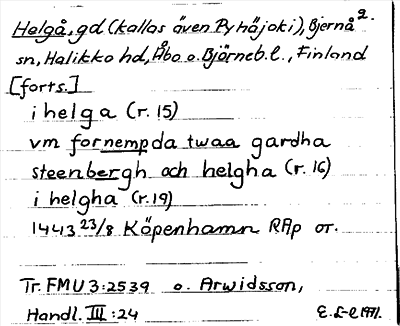 Helgå, gd (kallas även Pyhäjoki), Bjernå 2.
sn, Halikko hd, Åbo o. Björneb. l., Finland
[forts.]
i helga (r. 15)
vm fornempda twaa gardha
steenbergh och helgha (r. 16)
i helgha (r. 19)
1443 23/8 Köpenhamn RAp or.
Tr. FMU 3:2539 o. Arwidsson,
Handl. III:24 E. S-e 1971.